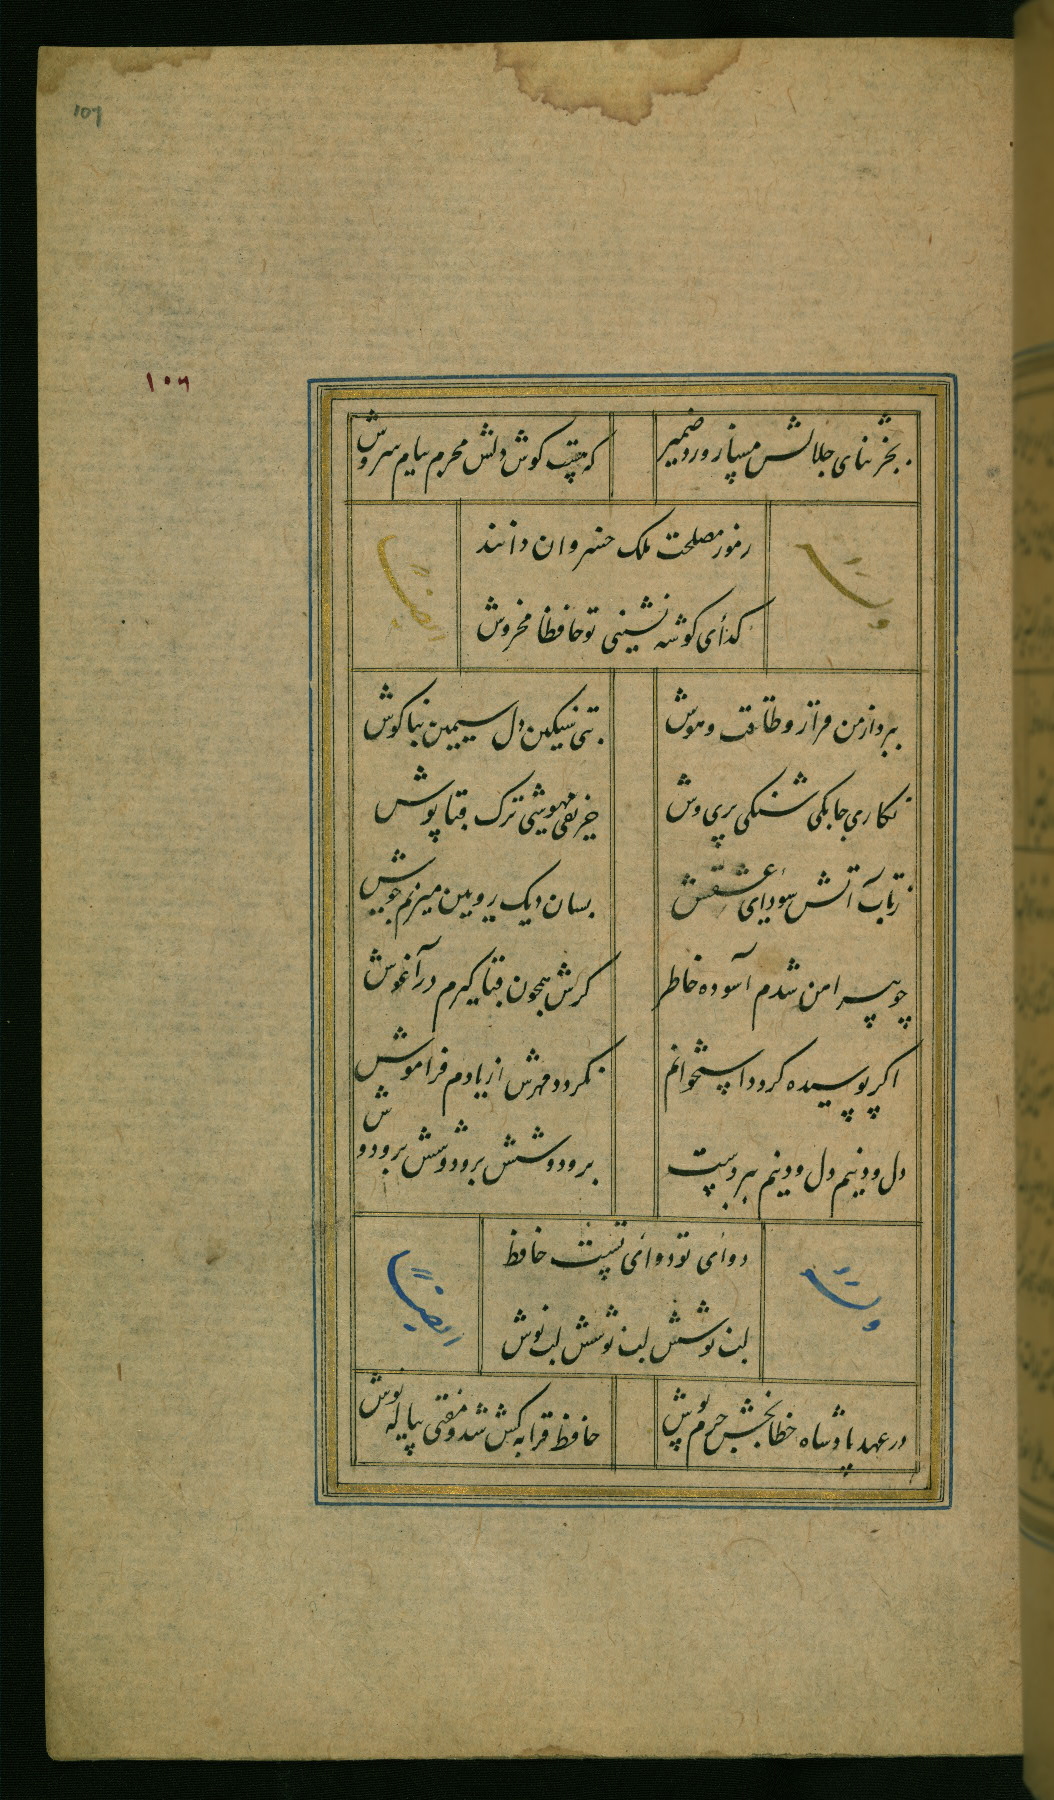 107
۱۰۶
بجز ثنای جلالش مساز ورد ضمیر
که هست کوش دلش محرم پیام سروش
رموز مصلحت ملک خسروان دانند
کدای کوشه نشینی تو حافظا مخروش
وله ایضاً
ببرد از من قرار و طاقت و هوش
بتی سنکین دل سیمین بناکوش
نکاری جابکی شنکی پری وش
ظریفی مهوشی ترک قباپوش
ز تاب آتش سودای عشقش
بسان دیک رویین میزنم جوش
چو پیراهن شدم آسوده خاطر
کرش همچون قبا کیرم در آغوش
اکر پوسیده کردد استخوانم
نکردد مهرش از یادم فراموش
دل و دینم دل و دینم ببردست
برو دوشش برو دوشش برو دوش
دوای تو دوای تست حافظ
لب نوشش لب نوشش لب نوش
وله ایضاً
در عهد پادشاه خطابخش جرم پوش
حافظ قرابه کش شد و مفتی پیاله نوش